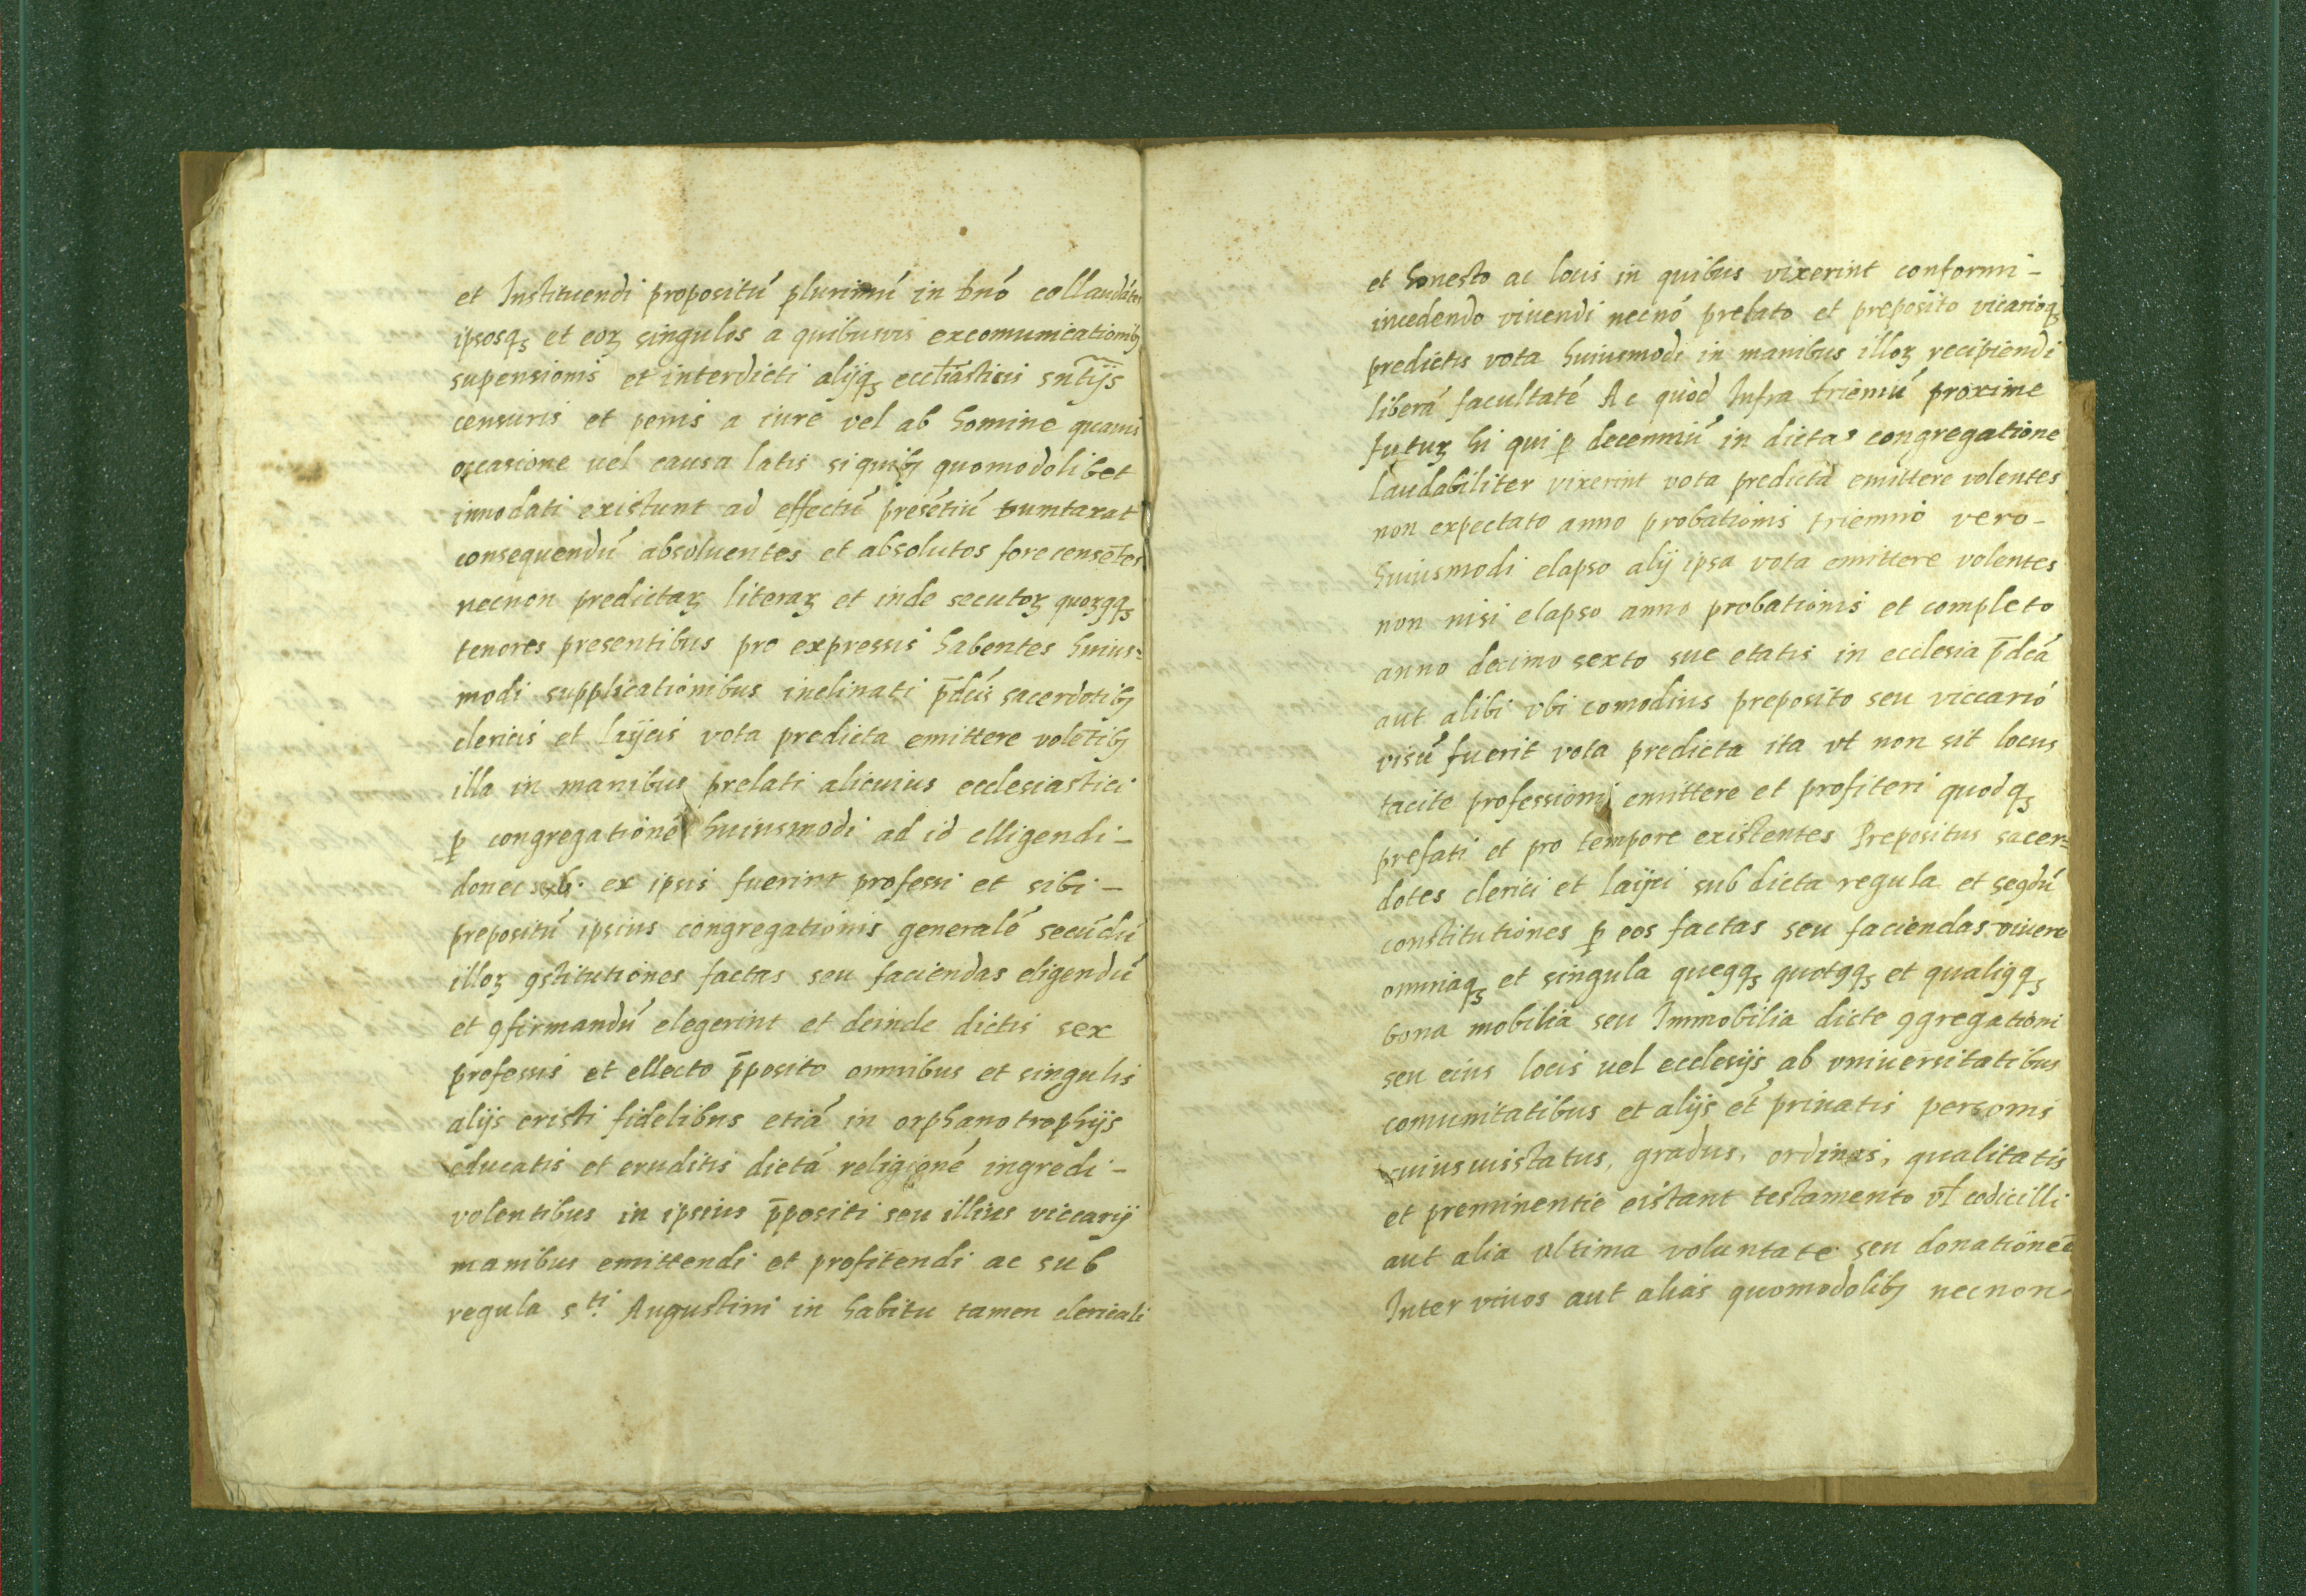 et Instituendi propositú plurimú in dnó collaudátes
ipsosqꝫ et eoꝝ singulos a quibusuis excomunicationibꝫ
supensionis et interdicti alijqꝫ eccl̃iasticis sntĩjs
censuris et penis a iure vel ab homine quauis
occasione uel causa latis si quibꝫ quomodolibet
innodati existunt ad effectú presétiú dumtaxat
consequendú absoluentes et absolutos fore censẽtes
necnon predictaꝝ literaꝝ et inde secutoꝝ quoꝝꝯqꝫ
tenores presentibus pro expressis habentes huius=
modi supplicationibus inclinati p̄dcís sacerdotibꝫ
clericis et laijcis vota predicta emittere volẽtibꝫ
illa in manibus prelati alicuius ecclesiastici
ꝑ congregationé huiusmodi ad id elligendi -
donec ex ipsis fuerint professi et sibi -
prepositú ipsius congregationis generalé secúdú
illoꝝ ꝯstitutiones factas seu faciendas eligendú
et ꝯfirmandú elegerint et deinde dictis sex
professis et ellecto p̄posito omnibus et singulis
alijs cristi fidelibus etiá in orphanotrophijs
educatis et eruditis dictá religioné ingredi -
volentibus in ipsius p̄positi seu illius viccarij
manibus emittendi et profitendi ac sub
regula s.ti Augustini in habitu tamen clericali
et honesto ac locis in quibus vixerint conformi -
incedendo viuendi necnó prelato et preposito vicarioqꝫ
predictis vota huiusmodi in manibus illoꝝ recipiendi
liberá facultaté Ac quòd Infra triẽniú proxime
futuꝝ hi qui ꝑ decenniú in dicta congregatione
laudabiliter vixerint vota predicta emittere volentes
non expectato anno probationis triennio vero -
huiusmodi elapso alij ipsa vota emittere volentes
non nisi elapso anno probationis et completo
anno decimo sexto sue etatis in ecclesia p̄dcá
aut alibi vbi comodius preposito seu viccario
visú fuerit vota predicta ita vt non sit locus
tacite professioni emittere et profiteri quodqꝫ
prefati et pro tempore existentes Prepositus sacer=
dotes clerici et laijci sub dicta regula et segdú
constitutiones ꝑ eos factas seu faciendas viuere
omniaqꝫ et singula queꝯqꝫ quotꝯqꝫ et qualiꝯqꝫ
bona mobilia seu Immobilia dicte ꝯgregationi
seu eius locis uel ecclesijs ab vniuersitatibus
comunitatibus et alijs ét priuatis personis
cuiusuis status, gradus, ordinis, qualitatis
et preminentie existant testamento vl̃ codicilli
aut alia vltima voluntate seu donatione
Inter viuos aut aliàs quomodolibꝫ necnon